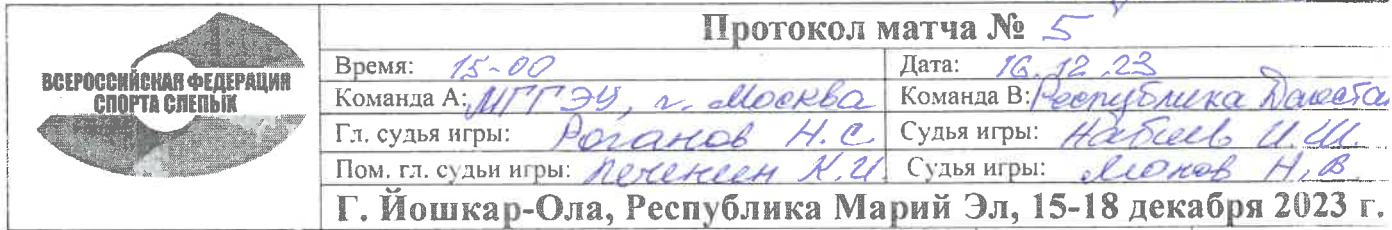 ВСЕРОССИЙСКАЯ ФЕДЕРАЦИЯ
СПОРТА СЛЕПЫХ
Протокол матча № 5
Время: 15-00 Дата: 16.12.23
Команда А: МГГЭУ, г. Москва Команда В: Республика Дагестан
Гл. судья игры: Роганов Н.С Судья игры: Набиев И.Ш.
Пом. гл. судьи игры: Печенин К.И. Судья игры: Н.В
Г. Йошкар-Ола, Республика Марий Эл, 15-18 декабря 2023 г.